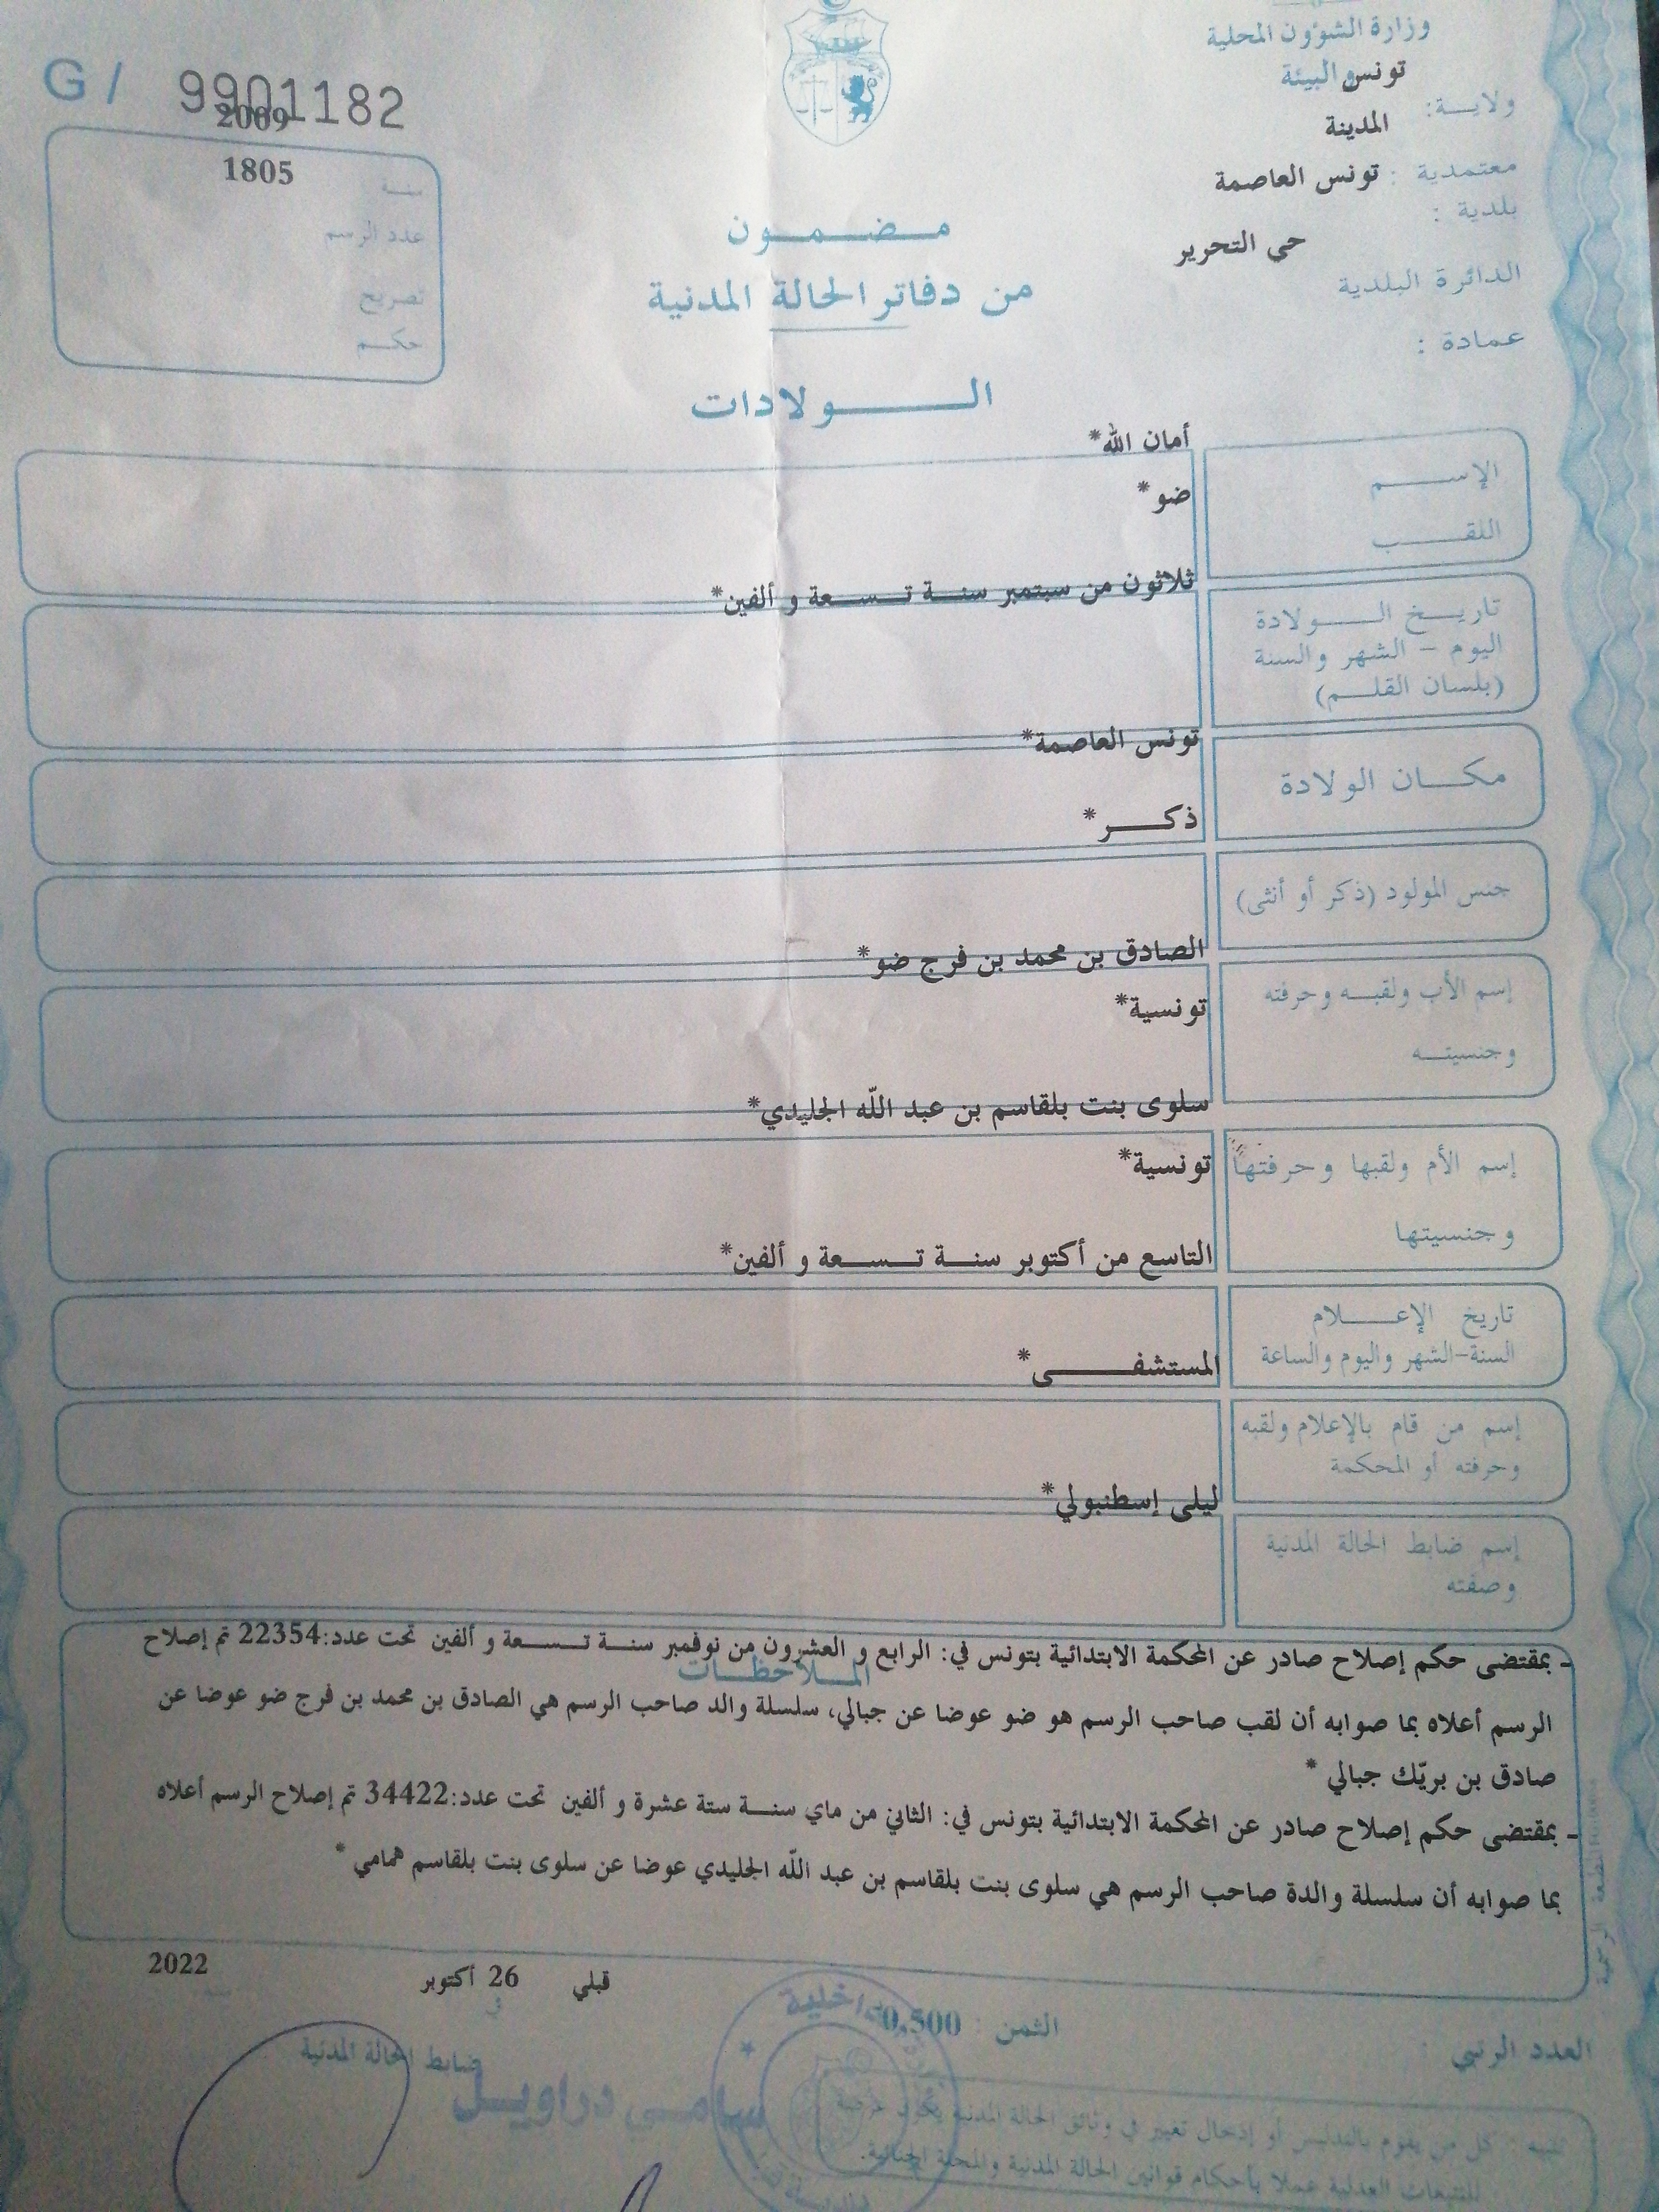 وزارة الشؤون المحلية
والبيئة
تونس
ولايــة:
المدينة
معتمدية : تونس العاصمة
بلدية :
حي التحرير
الدائرة البلدية
عمادة :
G / 9901182
2009
1805
سنة
عدد الرسم
تصريح
حكم
مضمون
من دفاتر الحالة المدنية
الولادات
أمان الله*
الإسم
ضو*
اللقب
ثلاثون من سبتمبر سنة تسعة و ألفين*
تاريخ الولادة
اليوم - الشهر والسنة
(بلسان القلم)
تونس العاصمة*
مكان الولادة
ذكر*
جنس المولود (ذكر أو أنثى)
الصادق بن محمد بن فرج ضو*
إسم الأب ولقبه وحرفته
تونسية*
وجنسيته
سلوى بنت بلقاسم بن عبد اللّه الجليدي*
إسم الأم ولقبها وحرفتها
تونسية*
وجنسيتها
التاسع من أكتوبر سنة تسعة و ألفين*
تاريخ الإعلام
السنة-الشهر واليوم والساعة
المستشفى*
إسم من قام بالإعلام ولقبه
وحرفته أو المحكمة
ليلى إسطنبولي*
إسم ضابط الحالة المدنية
وصفته
الملاحظات
- بمقتضى حكم إصلاح صادر عن المحكمة الابتدائية بتونس في: الرابع و العشرون من نوفمبر سنة تسعة و ألفين تحت عدد:22354 تم إصلاح
الرسم أعلاه بما صوابه أن لقب صاحب الرسم هو ضو عوضا عن جبالي، سلسلة والد صاحب الرسم هي الصادق بن محمد بن فرج ضو عوضا عن
صادق بن بريّك جبالي *
- بمقتضى حكم إصلاح صادر عن المحكمة الابتدائية بتونس في: الثاني من ماي سنة ستة عشرة و ألفين تحت عدد:34422 تم إصلاح الرسم أعلاه
بما صوابه أن سلسلة والدة صاحب الرسم هي سلوى بنت بلقاسم بن عبد اللّه الجليدي عوضا عن سلوى بنت بلقاسم همامي *
قبلي 26 أكتوبر 2022
في سنة
العدد الرتبي :
الثمن : 0,500
ضابط الحالة المدنية
سامي دراويل
تنبيه : كل من يقوم بالتدليس أو إدخال تغيير في وثائق الحالة المدنية يكون عرضة
للتتبعات العدلية عملا بأحكام قوانين الحالة المدنية والمجلة الجنائية.